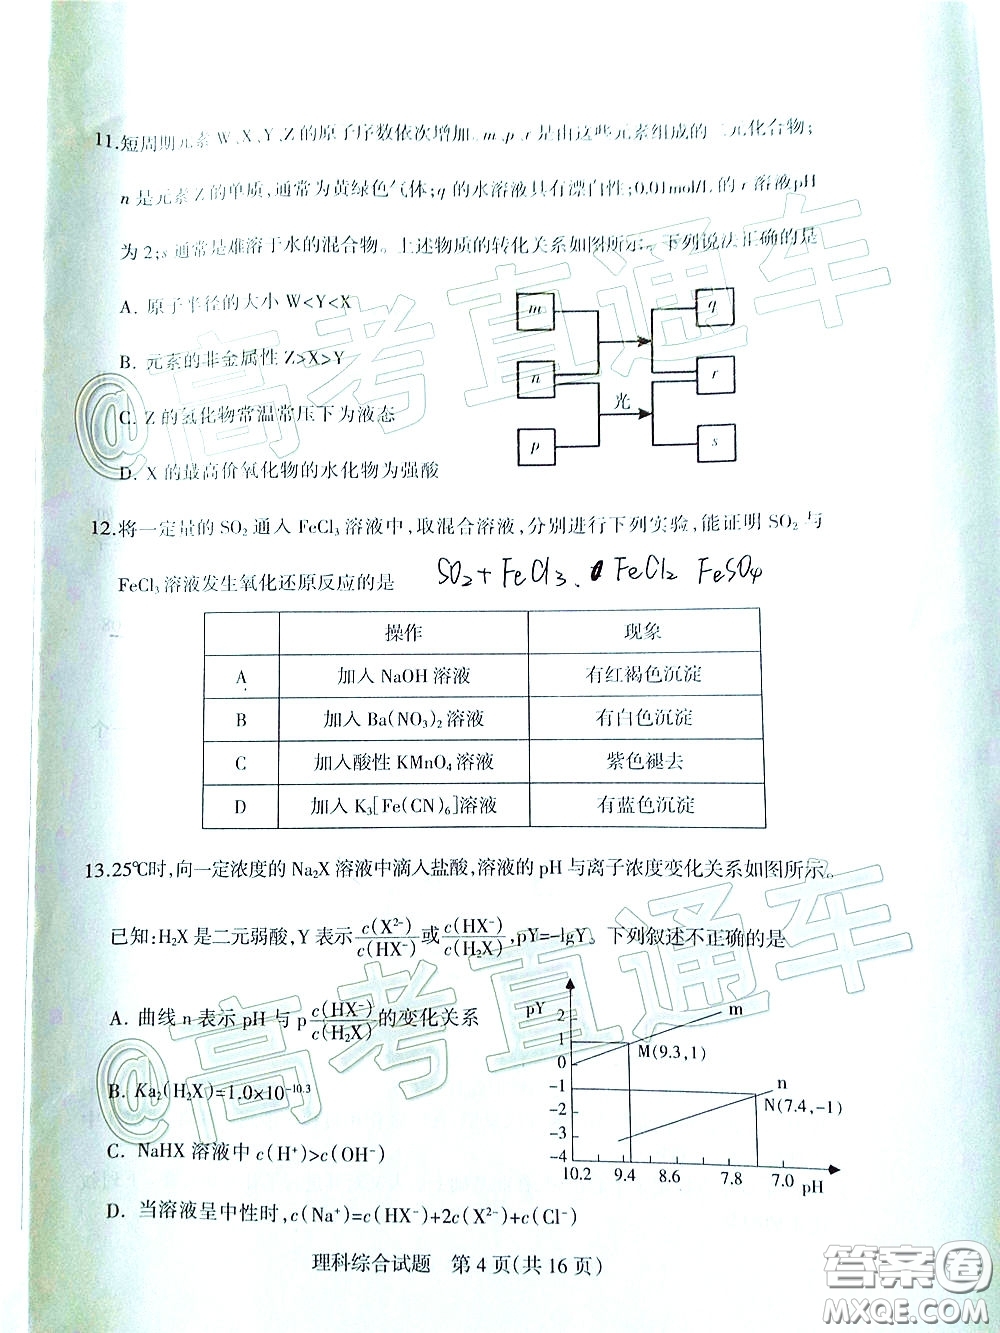 11.短周期元素 W、X、Y、Z 的原子序数依次增加。m、p、r 是由这些元素组成的二元化合物;
n 是元素 Z 的单质,通常为黄绿色气体;q 的水溶液具有漂白性;0.01mol/L 的 r 溶液pH
为 2;s 通常是难溶于水的混合物。上述物质的转化关系如图所示。下列说法正确的是
A. 原子半径的大小 W<Y<X
B. 元素的非金属性 Z>X>Y
C. Z 的氢化物常温常压下为液态
D. X 的最高价氧化物的水化物为强酸
m
n
p
光
q
r
s
12.将一定量的 SO₂ 通入 FeCl₃ 溶液中,取混合溶液,分别进行下列实验,能证明 SO₂ 与
FeCl₃ 溶液发生氧化还原反应的是
SO₂+FeCl₃、FeCl₂ FeSO₄
操作 现象
A 加入 NaOH 溶液 有红褐色沉淀
B 加入 Ba(NO₃)₂ 溶液 有白色沉淀
C 加入酸性 KMnO₄ 溶液 紫色褪去
D 加入 K₃[Fe(CN)₆]溶液 有蓝色沉淀
13.25℃时,向一定浓度的 Na₂X 溶液中滴入盐酸,溶液的 pH 与离子浓度变化关系如图所示。
已知:H₂X 是二元弱酸,Y 表示c(X²⁻)/c(HX⁻)或c(HX⁻)/c(H₂X),pY=-lgY。下列叙述不正确的是
A. 曲线 n 表示 pH 与 p c(HX⁻)/c(H₂X)的变化关系
B. Ka₂(H₂X)=1.0×10⁻¹⁰·³
C. NaHX 溶液中 c(H⁺)>c(OH⁻)
D. 当溶液呈中性时,c(Na⁺)=c(HX⁻)+2c(X²⁻)+c(Cl⁻)
pY
2
1
0
-1
-2
-3
-4
m
M(9.3,1)
n
N(7.4,-1)
10.2 9.4 8.6 7.8 7.0 pH
理科综合试题 第 4 页(共 16 页)
@高考直通车
@高考直通车
答案圈
MXQE.COM